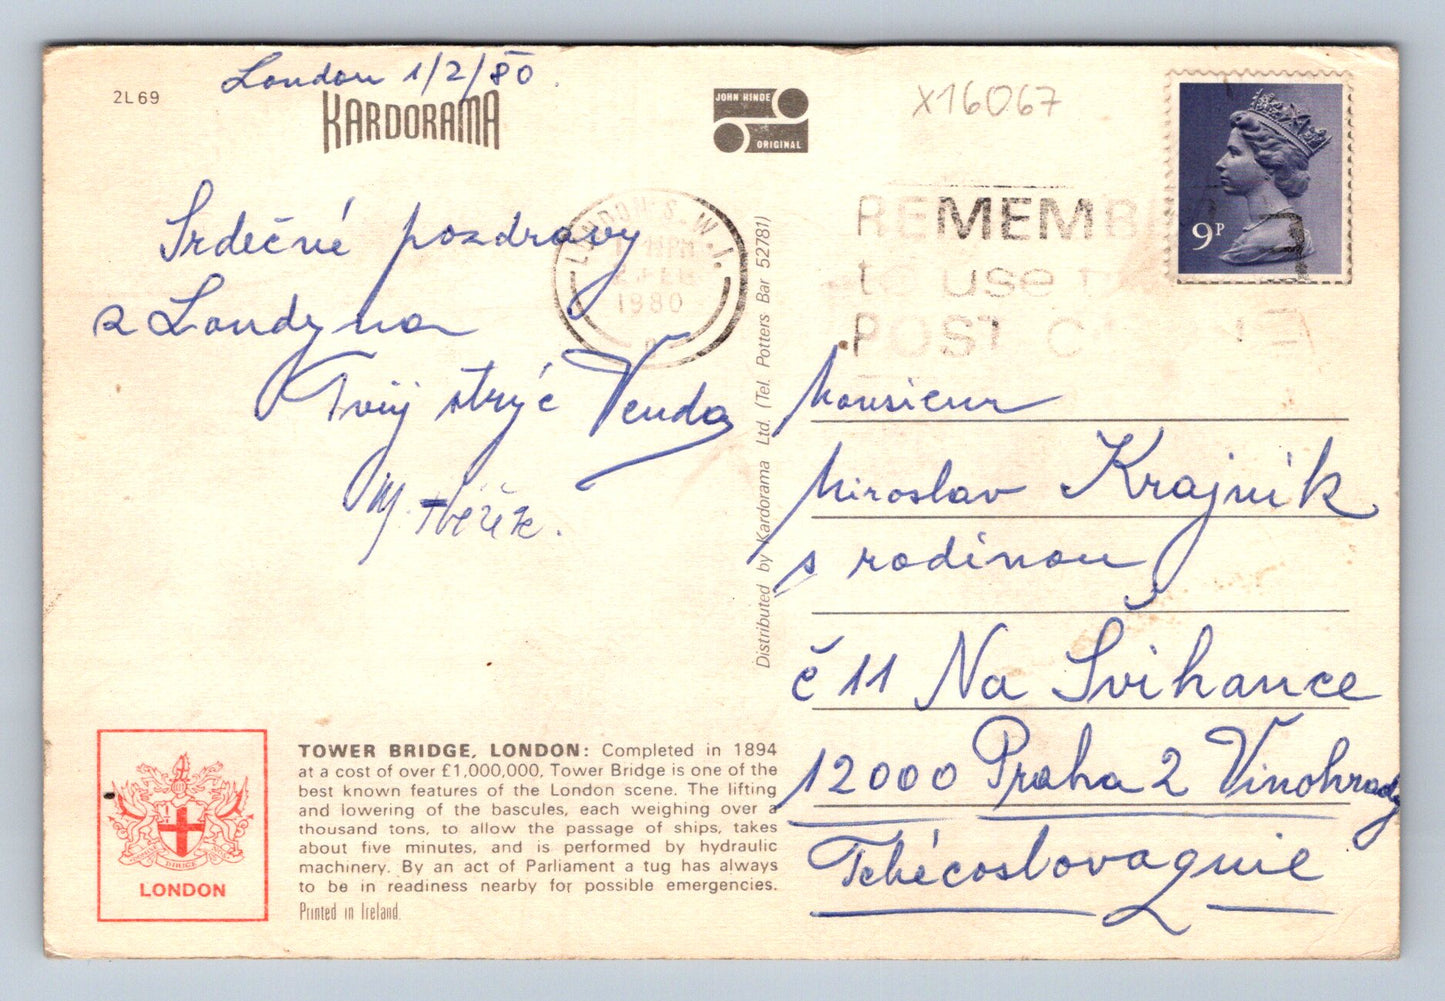 London 1/2/80.
2L69
KARDORAMA
JOHN HINDE
ORIGINAL
X16067
9P
LONDON S.W.1.
PM
2 FEB
1980
REMEMB
to use
POST C
Srdečné pozdravy
z Londyna
Tvůj strýc Venda
M.
Distributed by Kardorama Ltd. (Tel. Potters Bar 52781)
Monsieur
Miroslav Krajník
s rodinou
č 11 Na Švihance
12000 Praha 2 Vinohrady
Tchécoslovaquie
LONDON
TOWER BRIDGE, LONDON: Completed in 1894
at a cost of over £1,000,000, Tower Bridge is one of the
best known features of the London scene. The lifting
and lowering of the bascules, each weighing over a
thousand tons, to allow the passage of ships, takes
about five minutes, and is performed by hydraulic
machinery. By an act of Parliament a tug has always
to be in readiness nearby for possible emergencies.
Printed in Ireland.